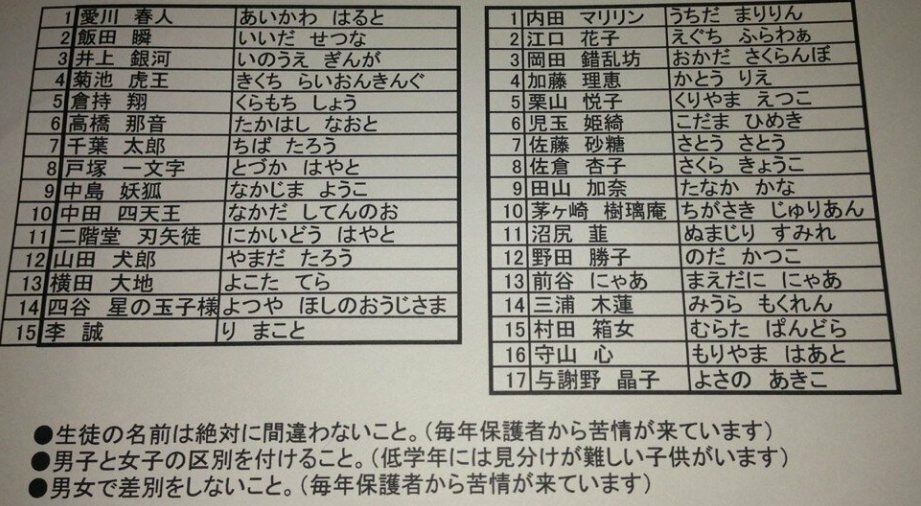 1 愛川 春人 あいかわ はると
2 飯田 瞬 いいだ せつな
3 井上 銀河 いのうえ ぎんが
4 菊池 虎王 きくち らいおんきんぐ
5 倉持 翔 くらもち しょう
6 高橋 那音 たかはし なおと
7 千葉 太郎 ちば たろう
8 戸塚 一文字 とづか はやと
9 中島 妖狐 なかじま ようこ
10 中田 四天王 なかだ してんのお
11 二階堂 刃矢徒 にかいどう はやと
12 山田 犬郎 やまだ たろう
13 横田 大地 よこた てら
14 四谷 星の玉子様 よつや ほしのおうじさま
15 李 誠 り まこと
1 内田 マリリン うちだ まりりん
2 江口 花子 えぐち ふらわぁ
3 岡田 錯乱坊 おかだ さくらんぼ
4 加藤 理恵 かとう りえ
5 栗山 悦子 くりやま えつこ
6 児玉 姫綺 こだま ひめき
7 佐藤 砂糖 さとう さとう
8 佐倉 杏子 さくら きょうこ
9 田山 加奈 たなか かな
10 茅ヶ崎 樹璃庵 ちがさき じゅりあん
11 沼尻 菫 ぬまじり すみれ
12 野田 勝子 のだ かつこ
13 前谷 にゃあ まえだに にゃあ
14 三浦 木蓮 みうら もくれん
15 村田 箱女 むらた ぱんどら
16 守山 心 もりやま はあと
17 与謝野 晶子 よさの あきこ
●生徒の名前は絶対に間違わないこと。(毎年保護者から苦情が来ています)
●男子と女子の区別を付けること。(低学年には見分けが難しい子供がいます)
●男女で差別をしないこと。(毎年保護者から苦情が来ています)